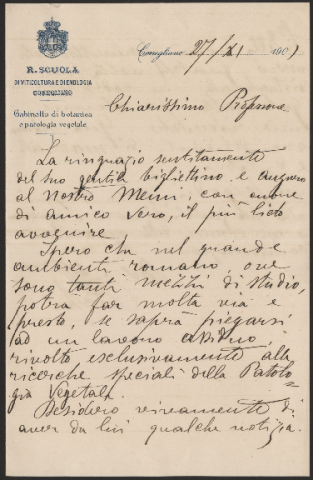 R. SCUOLA
DI VITICOLTURA E DI ENOLOGIA
CONEGLIANO
Gabinetto di botanica
e patologia vegetale
Conegliano 27/XI 1901
Chiarissimo Professore
La ringrazio sentitamente
del suo gentile bigliettino e auguro
al nostro Memi, con cuore
di amico vero, il più lieto
avvenire
Spero che nel grande
ambiente romano ove
sono tanti mezzi di studio,
potrà far molta via e
presto, se saprà piegarsi
ad un lavoro assiduo,
rivolto esclusivamente alle
ricerche speciali della Patolo=
gia Vegetale.
Desidero vivamente di
aver da lui qualche notizia.